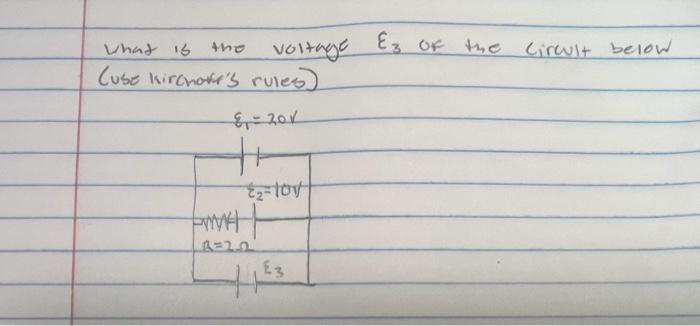 What is the voltage ε3 of the circuit below
(use Kirchoff's rules)
ε1 = 20V
ε2=10V
R=2Ω
ε3